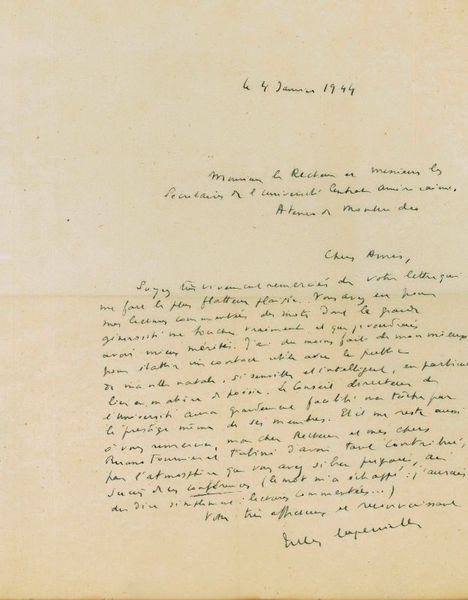 le 4 Janvier 1944
Monsieur le Recteur et Messieurs les
Secrétaires de l'Université Centrale Américaine,
Ateneo de Montevideo
Chers Amis,
Soyez très vivement remerciés de votre lettre qui
me fait le plus flatteur plaisir. Vous avez eu pour
mes lectures commentées des mots dont la grande
générosité me touche vraiment et que je voudrais
avoir mieux mérités. J'ai du moins fait de mon mieux
pour établir un contact utile avec le public
de ma ville natale, si sensible et intelligent, en particulier
en matière de poésie. Le Conseil directeur de
l'Université aura grandement facilité ma tâche par
le prestige même de ses membres. Et il me reste aussi
à vous remercier, mon cher Recteur et mes chers
d'avoir tant contribué,
par l'atmosphère que vous avez si bien préparée, au
succès de ces conférences (le mot m'a échappé: j'aurais
dû dire simplement: lectures commentées...)
Votre très affectueux et reconnaissant
Jules Supervielle